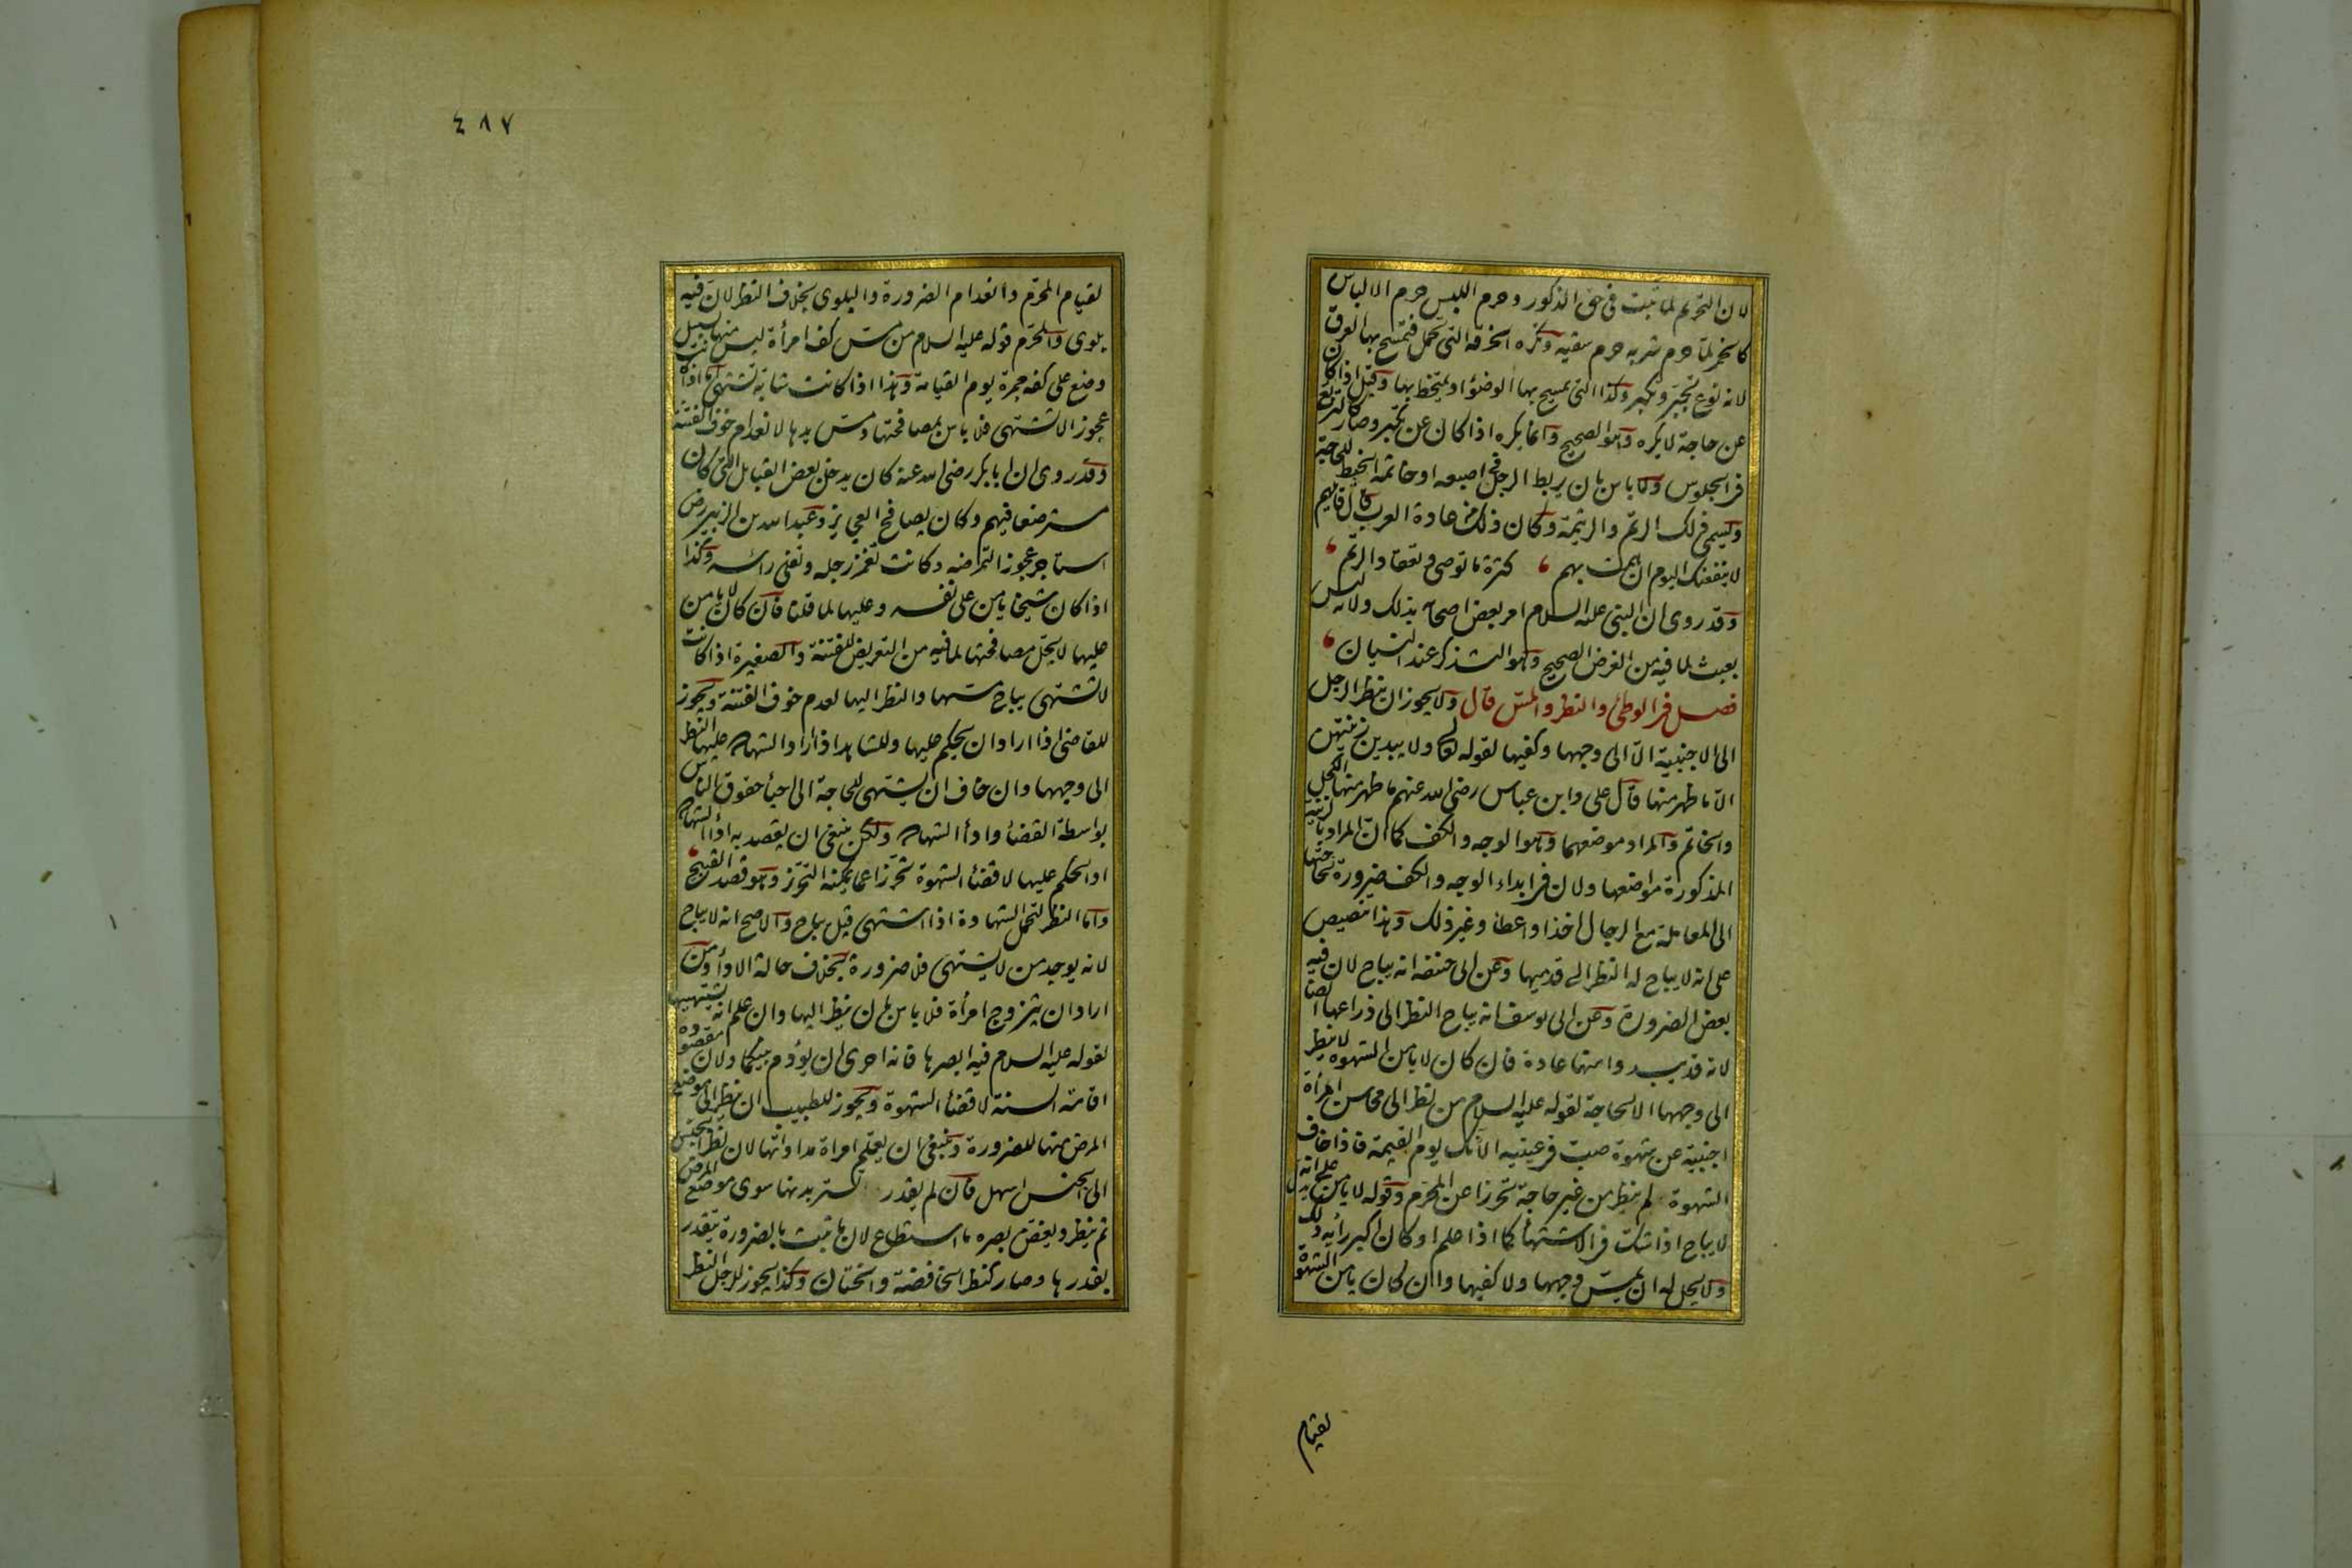 لان التحريم لما ثبت فى حق الذكور وحرم اللبس حرم الالباس
كالخمر لما حرم شربه حرم سقيه وتكره الخرقة التى تحمل فيمسح بها العرق
لانه نوع تجبر وتكبر وكذا التى يمسح بها الوضوء او يتمخط بها وقيل اذا كان
عن حاجة لا يكره وهو الصحيح وانما يكره اذا كان عن تكبر وصار كالتربع
فى الجلوس ولا باس بان يربط الرجل فى اصبعه او خاتمه الخيط للحاجة
ويسمى ذلك الرتم والرتيمة وكان ذلك من عادة العرب قال قايلهم
لا ينفعنك اليوم ان همت بهم ، كثرة ما توصى وتعقاد الرتم ،
وقد روى ان النبى عليه السلام امر بعض اصحابه بذلك ولانه ليس
بعبث لما فيه من الغرض الصحيح وهو التذكر عند النسيان ،
فصل فى الوطئ والنظر والمس قال ولا يجوز ان ينظر الرجل
الى الاجنبية الا الى وجهها وكفيها لقوله تعالى ولا يبدين زينتهن
الا ما ظهر منها قال على وابن عباس رضى الله عنهم ما ظهر منها الكحل
والخاتم والمراد موضعهما وهو الوجه والكف كما ان المراد بالزينة
المذكورة مواضعها ولان فى ابداء الوجه والكف ضرورة لحاجتها
الى المعاملة مع الرجال اخذا واعطاء وغير ذلك وهذا تنصيص
على انه لا يباح له النظر الى قدميها وعن ابى حنيفه انه يباح لان فيه
بعض الضرورة وعن ابى يوسف انه يباح النظر الى ذراعها ايضا
لانه قد يبدو امنها عادة فان كان لا يامن الشهوة لا ينظر
الى وجهها الا لحاجة لقوله عليه السلام من نظر الى محاسن امرأة
اجنبية عن شهوة صب فى عينيه الآنك يوم القيمة فاذا خاف
الشهوة لم ينظر من غير حاجة تحرزا عن المحرم وقوله لا يامن يدل على انه
لا يباح اذا شك فى الاشتهاء كما اذا علم او كان اكبر رأيه ذلك
ولا يحل له ان يمس وجهها ولا كفيها وان كان يامن الشهوة
لقيام
٤٨٧
لقيام المحرم وانعدام الضرورة والبلوى بخلاف النظر لان فيه
بلوى والمحرم قوله عليه السلام من مس كف امرأة ليس منها بسبيل
وضع على كفه جمرة يوم القيامة وهذا اذا كانت شابة تشتهى اما اذا كانت
عجوزا لا تشتهى فلا باس بمصافحتها ومس يدها لانعدام خوف الفتنة
وقد روى ان ابا بكر رضى الله عنه كان يدخل بعض القبايل التى كان
مسترضعا فيهم وكان يصافح العجايز وعبد الله بن الزبير رض
استاجر عجوزا لتمرضه وكانت تغمز رجله وتفلى رأسه وكذا
اذا كان شيخا يامن على نفسه وعليها لما قلنا فان كان لا يامن
عليها لا يحل مصافحتها لما فيه من التعريض للفتنة والصغيرة اذا كانت
لا تشتهى يباح مسها والنظر اليها لعدم خوف الفتنة ويجوز
للقاضى اذا اراد ان يحكم عليها وللشاهد اذا اراد الشهادة عليها النظر
الى وجهها وان خاف ان يشتهى للحاجة الى احياء حقوق الناس
بواسطة القضاء واداء الشهادة ولكن ينبغى ان يقصد به اداء الشهادة
او الحكم عليها لا قضاء الشهوة تحرزا عما يمكنه التحرز وهو قصد القبيح ،
واما النظر لتحمل الشهادة اذا اشتهى قيل يباح والاصح انه لا يباح
لانه يوجد من لا يشتهى فلا ضرورة بخلاف حالة الاداء ومن
اراد ان يتزوج امرأة فلا باس بان ينظر اليها وان علم انه يشتهيها
لقوله عليه السلام فيه ابصرها فانه احرى ان يؤدم بينكما ولان مقصوده
اقامة السنة لا قضاء الشهوة ويجوز للطبيب ان ينظر الى موضع
المرض منها للضرورة وينبغى ان يعلم امراة مداواتها لان نظر الجنس
الى الجنس اسهل فان لم يقدر تستر بدنها سوى موضع المرض
ثم ينظر ويغض بصره ما استطاع لان ما ثبت بالضرورة يتقدر
بقدرها وصار كنظر الخافضة والختان وكذا يجوز للرجل النظر